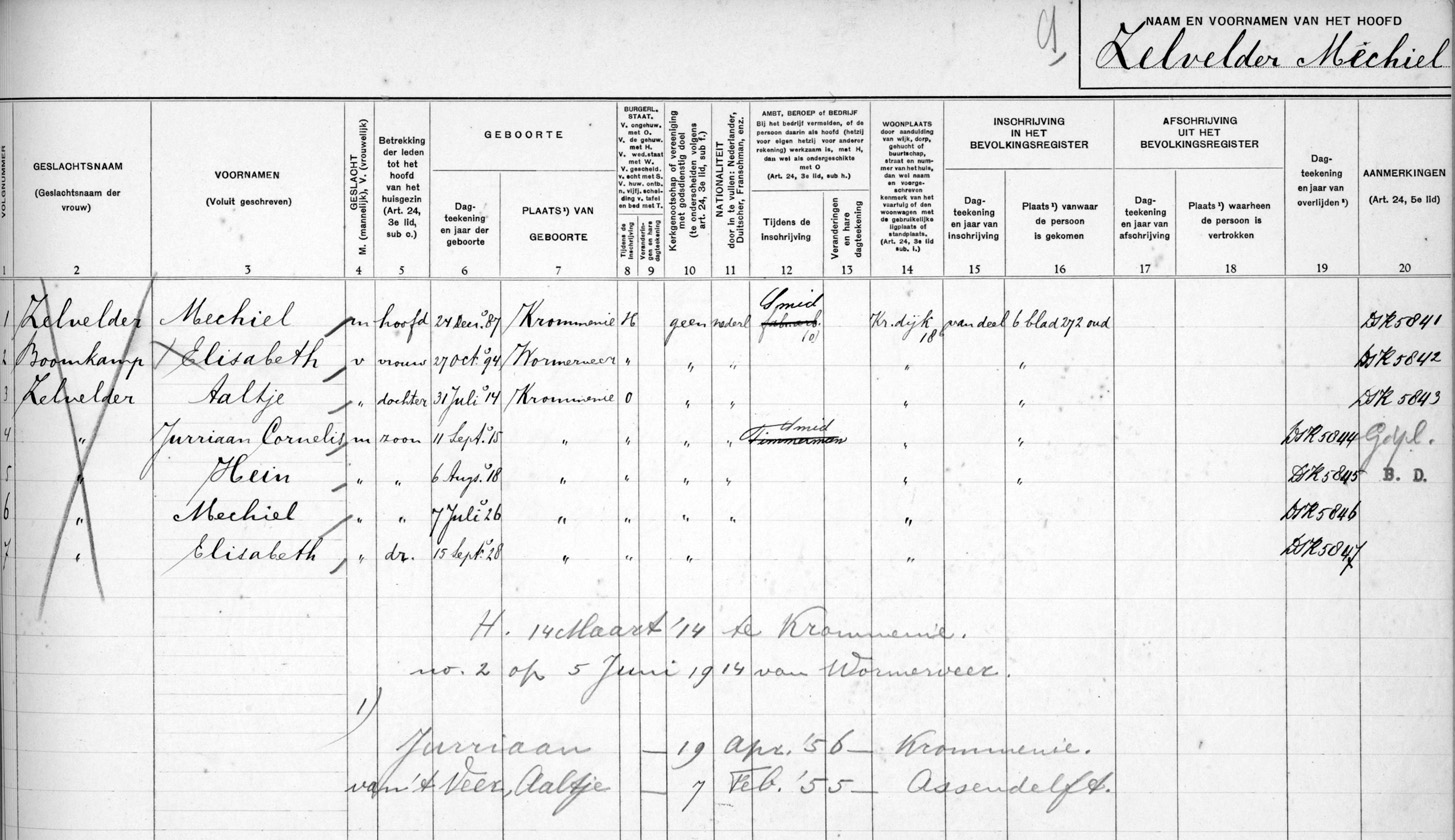 NAAM EN VOORNAMEN VAN HET HOOFD
Zelvelder Mechiel
VOLGNUMMER
GESLACHTSNAAM
(Geslachtsnaam der
vrouw)
VOORNAMEN
(Voluit geschreven)
GESLACHT
M. (mannelijk), V. (vrouwelijk)
Betrekking
der leden
tot het
hoofd
van het
huisgezin
(Art. 24,
3e lid,
sub c.)
GEBOORTE
Dag-
teekening
en jaar der
geboorte
PLAATS¹) VAN
GEBOORTE
BURGERL.
STAAT.
V. ongehuw.
met O.
V. de gehuw.
met H.
V. wed.staat
met W.
V. gescheid.
v. echt met S.
V. huw. ontb.
n. vijfj. schei-
ding v. tafel
en bed met T.
Tijdens de
inschrijving
Veranderin-
gen en hare
dagteekening
Kerkgenootschap of vereeniging
met godsdienstig doel
(te onderscheiden volgens
art. 24, 3e lid, sub f.)
NATIONALITEIT
door in te vullen: Nederlander,
Duitscher, Franschman, enz.
AMBT, BEROEP of BEDRIJF
Bij het bedrijf vermelden, of de
persoon daarin als hoofd (hetzij
voor eigen hetzij voor anderer
rekening) werkzaam is, met H,
dan wel als ondergeschikte
met O
(Art. 24, 3e lid, sub h.)
Tijdens de
inschrijving
Veranderingen
en hare
dagteekening
WOONPLAATS
door aanduiding
van wijk, dorp,
gehucht of
buurtschap,
straat en num-
mer van het huis,
dan wel naam
en voorge-
schreven
kenmerk van het
vaartuig of den
woonwagen met
de gebruikelijke
ligplaats of
standplaats.
(Art. 24, 3e lid
sub i.)
INSCHRIJVING
IN HET
BEVOLKINGSREGISTER
Dag-
teekening
en jaar van
inschrijving
Plaats¹) vanwaar
de persoon
is gekomen
AFSCHRIJVING
UIT HET
BEVOLKINGSREGISTER
Dag-
teekening
en jaar van
afschrijving
Plaats¹) waarheen
de persoon is
vertrokken
Dag-
teekening
en jaar van
overlijden ²)
AANMERKINGEN
(Art. 24, 5e lid)
1 2 3 4 5 6 7 8 9 10 11 12 13 14 15 16 17 18 19 20
1 Zelvelder Mechiel m hoofd 24 Dec. '87 Krommenie H geen nederl Smid Kr. dijk 18 van deel 6 blad 272 oud DSK 5841
2 Boomkamp Elisabeth v vrouw 27 Oct. '94 Wormerveer " " " " " DSK 5842
3 Zelvelder Aaltje " dochter 31 Juli '14 Krommenie O " " " " DSK 5843
4 " Jurriaan Cornelis m zoon 11 Sept. '15 " " " " Smid Timmerman " " DSK 5844 Gehl.
5 " Hein " " 6 Augs. '18 " " " " " " DSK 5845 B. D.
6 " Mechiel " " 7 Juli '26 " " " " " DSK 5846
7 " Elisabeth " dr. 15 Sept. '28 " " " " DSK 5847
H. 14 Maart '14 te Krommenie.
no. 2 op 5 Juni 1914 van Wormerveer.
1)
Jurriaan — 19 Apr. '56 — Krommenie.
van 't Veer, Aaltje — 7 Feb. '55 — Assendelft.